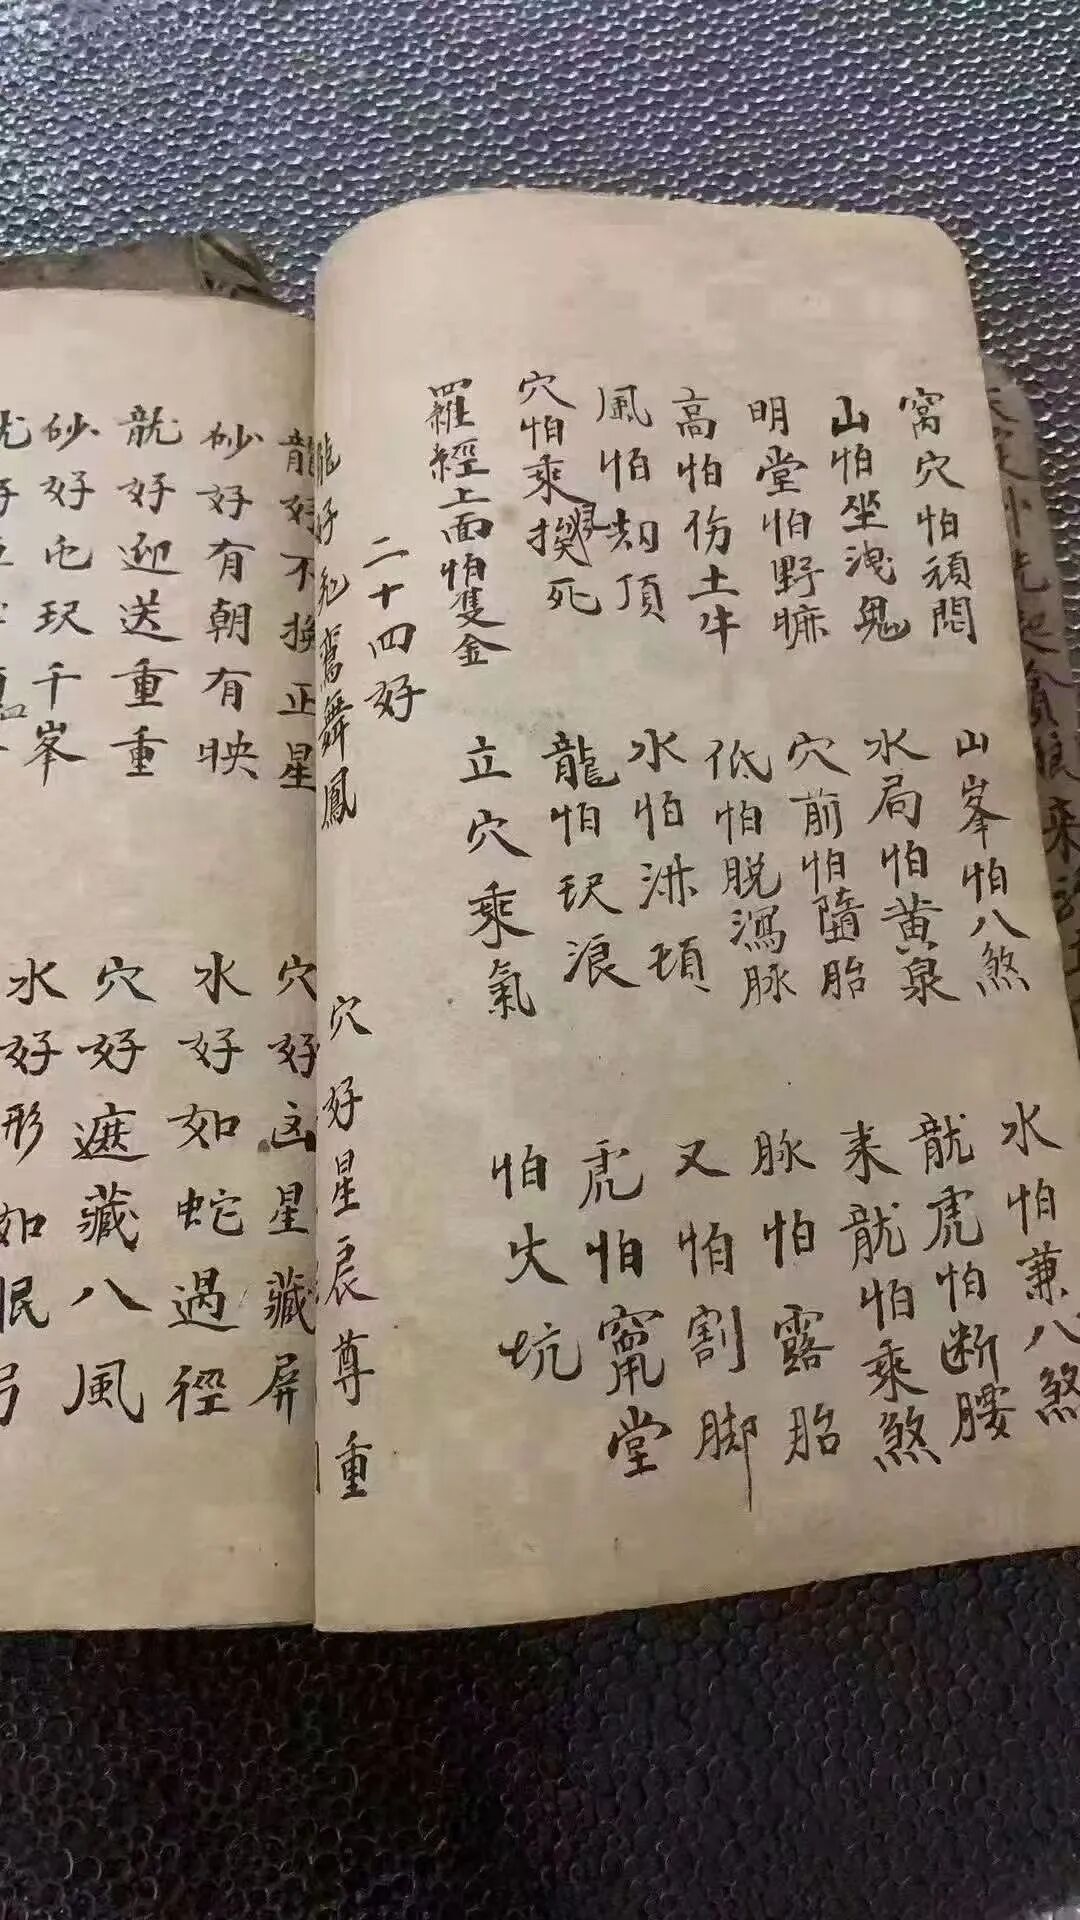 窩穴怕頑悶
山峯怕八煞
水怕兼八煞
山怕坐洩鬼
水局怕黄泉
龍虎怕断腰
明堂怕野曠
穴前怕墮胎
来龍怕乘煞
高怕伤土牛
低怕脱瀉脉
脉怕露胎
風怕刼頂
水怕淋頭
又怕割脚
穴怕乘死
龍怕玑浪
虎怕竄堂
羅經上面怕隻金
立穴乘氣
怕火坑
二十四好
龍好飛鸞舞鳳
穴好星辰尊重
龍好不换正星
穴好 星藏屏
砂好有朝有映
水好如蛇過徑
龍好迎送重重
穴好遮藏八風
砂好屯 千峯
水好形如眠弓